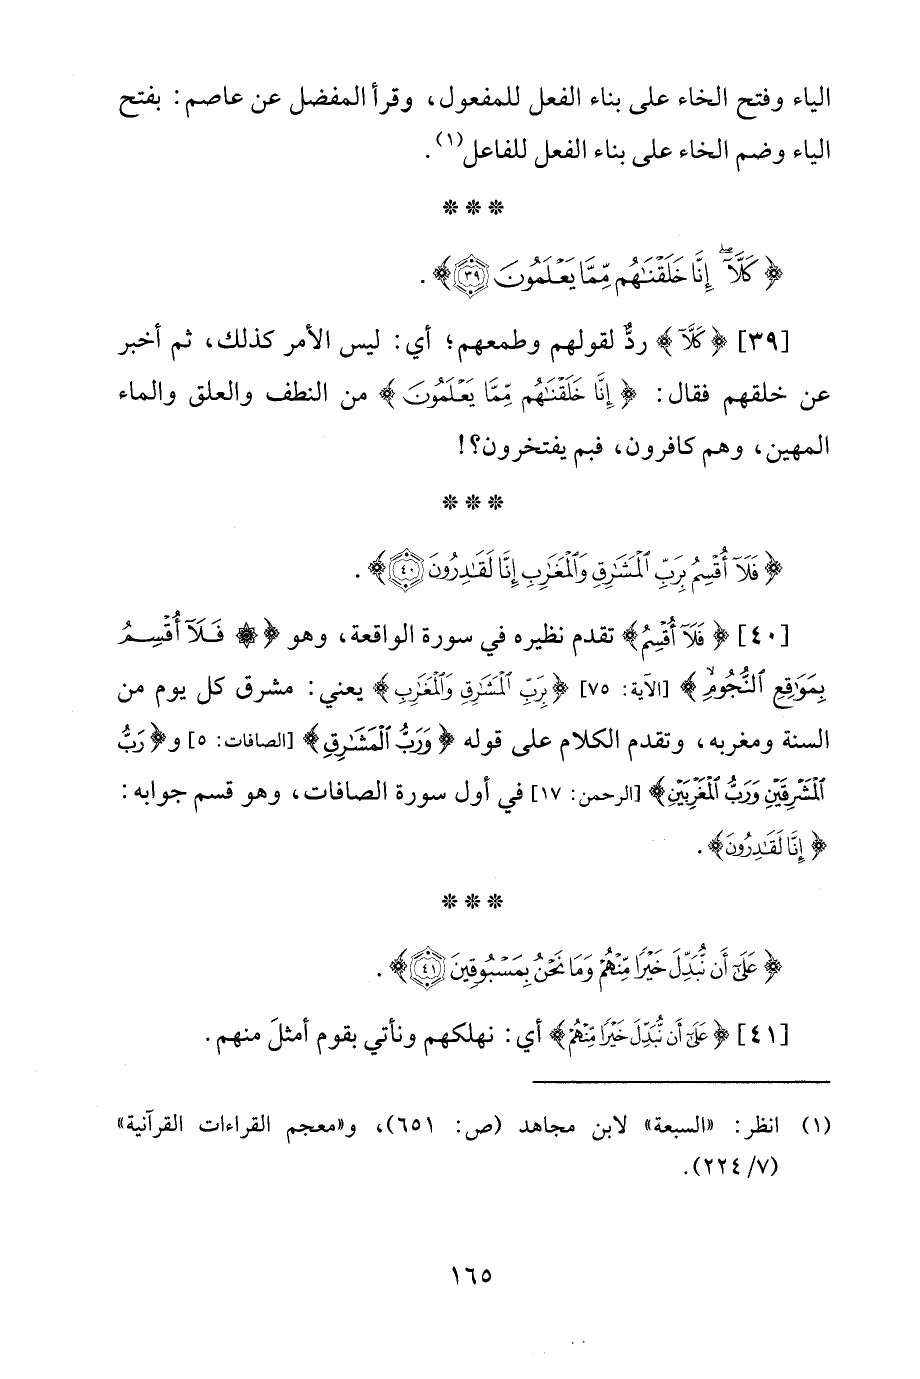 الياء وفتح الخاء على بناء الفعل للمفعول، وقرأ المفضل عن عاصم: بفتح
الياء وضم الخاء على بناء الفعل للفاعل(١).
***
﴿كَلَّآ ۖ إِنَّا خَلَقْنَٰهُم مِّمَّا يَعْلَمُونَ ٣٩﴾.
[٣٩] ﴿كَلَّآ﴾ ردٌّ لقولهم وطمعهم؛ أي: ليس الأمر كذلك، ثم أخبر
عن خلقهم فقال: ﴿إِنَّا خَلَقْنَٰهُم مِّمَّا يَعْلَمُونَ﴾ من النطف والعلق والماء
المهين، وهم كافرون، فبم يفتخرون؟!
***
﴿فَلَآ أُقْسِمُ بِرَبِّ ٱلْمَشَٰرِقِ وَٱلْمَغَٰرِبِ إِنَّا لَقَٰدِرُونَ ٤٠﴾.
[٤٠] ﴿فَلَآ أُقْسِمُ﴾ تقدم نظيره في سورة الواقعة، وهو ﴿۞ فَلَآ أُقْسِمُ
بِمَوَٰقِعِ ٱلنُّجُومِ ۙ﴾ [الآية: ٧٥] ﴿بِرَبِّ ٱلْمَشَٰرِقِ وَٱلْمَغَٰرِبِ﴾ يعني: مشرق كل يوم من
السنة ومغربه، وتقدم الكلام على قوله ﴿وَرَبُّ ٱلْمَشَٰرِقِ﴾ [الصافات: ٥] و﴿رَبُّ
ٱلْمَشْرِقَيْنِ وَرَبُّ ٱلْمَغْرِبَيْنِ﴾ [الرحمن: ١٧] في أول سورة الصافات، وهو قسم جوابه:
﴿إِنَّا لَقَٰدِرُونَ﴾.
***
﴿عَلَىٰٓ أَن نُّبَدِّلَ خَيْرًا مِّنْهُمْ وَمَا نَحْنُ بِمَسْبُوقِينَ ٤١﴾.
[٤١] ﴿عَلَىٰٓ أَن نُّبَدِّلَ خَيْرًا مِّنْهُمْ﴾ أي: نهلكهم ونأتي بقوم أمثلَ منهم.
(١) انظر: «السبعة» لابن مجاهد (ص: ٦٥١)، و«معجم القراءات القرآنية»
(٧/ ٢٢٤).
١٦٥